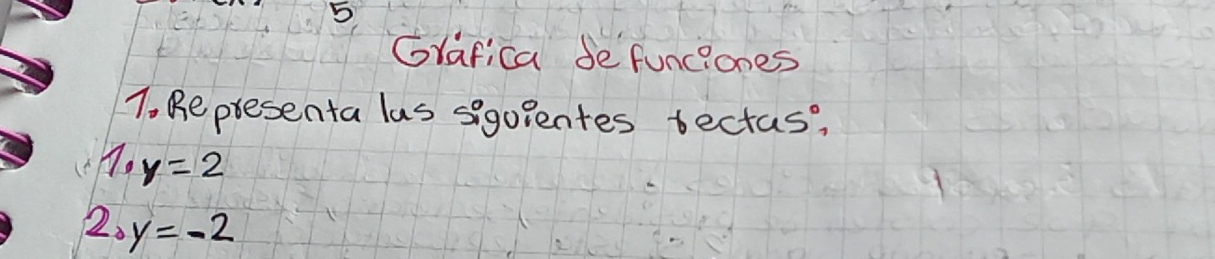 5
Gráfica de funciones
1. Representa las siguientes rectas:
1. y = 2
2. y = -2